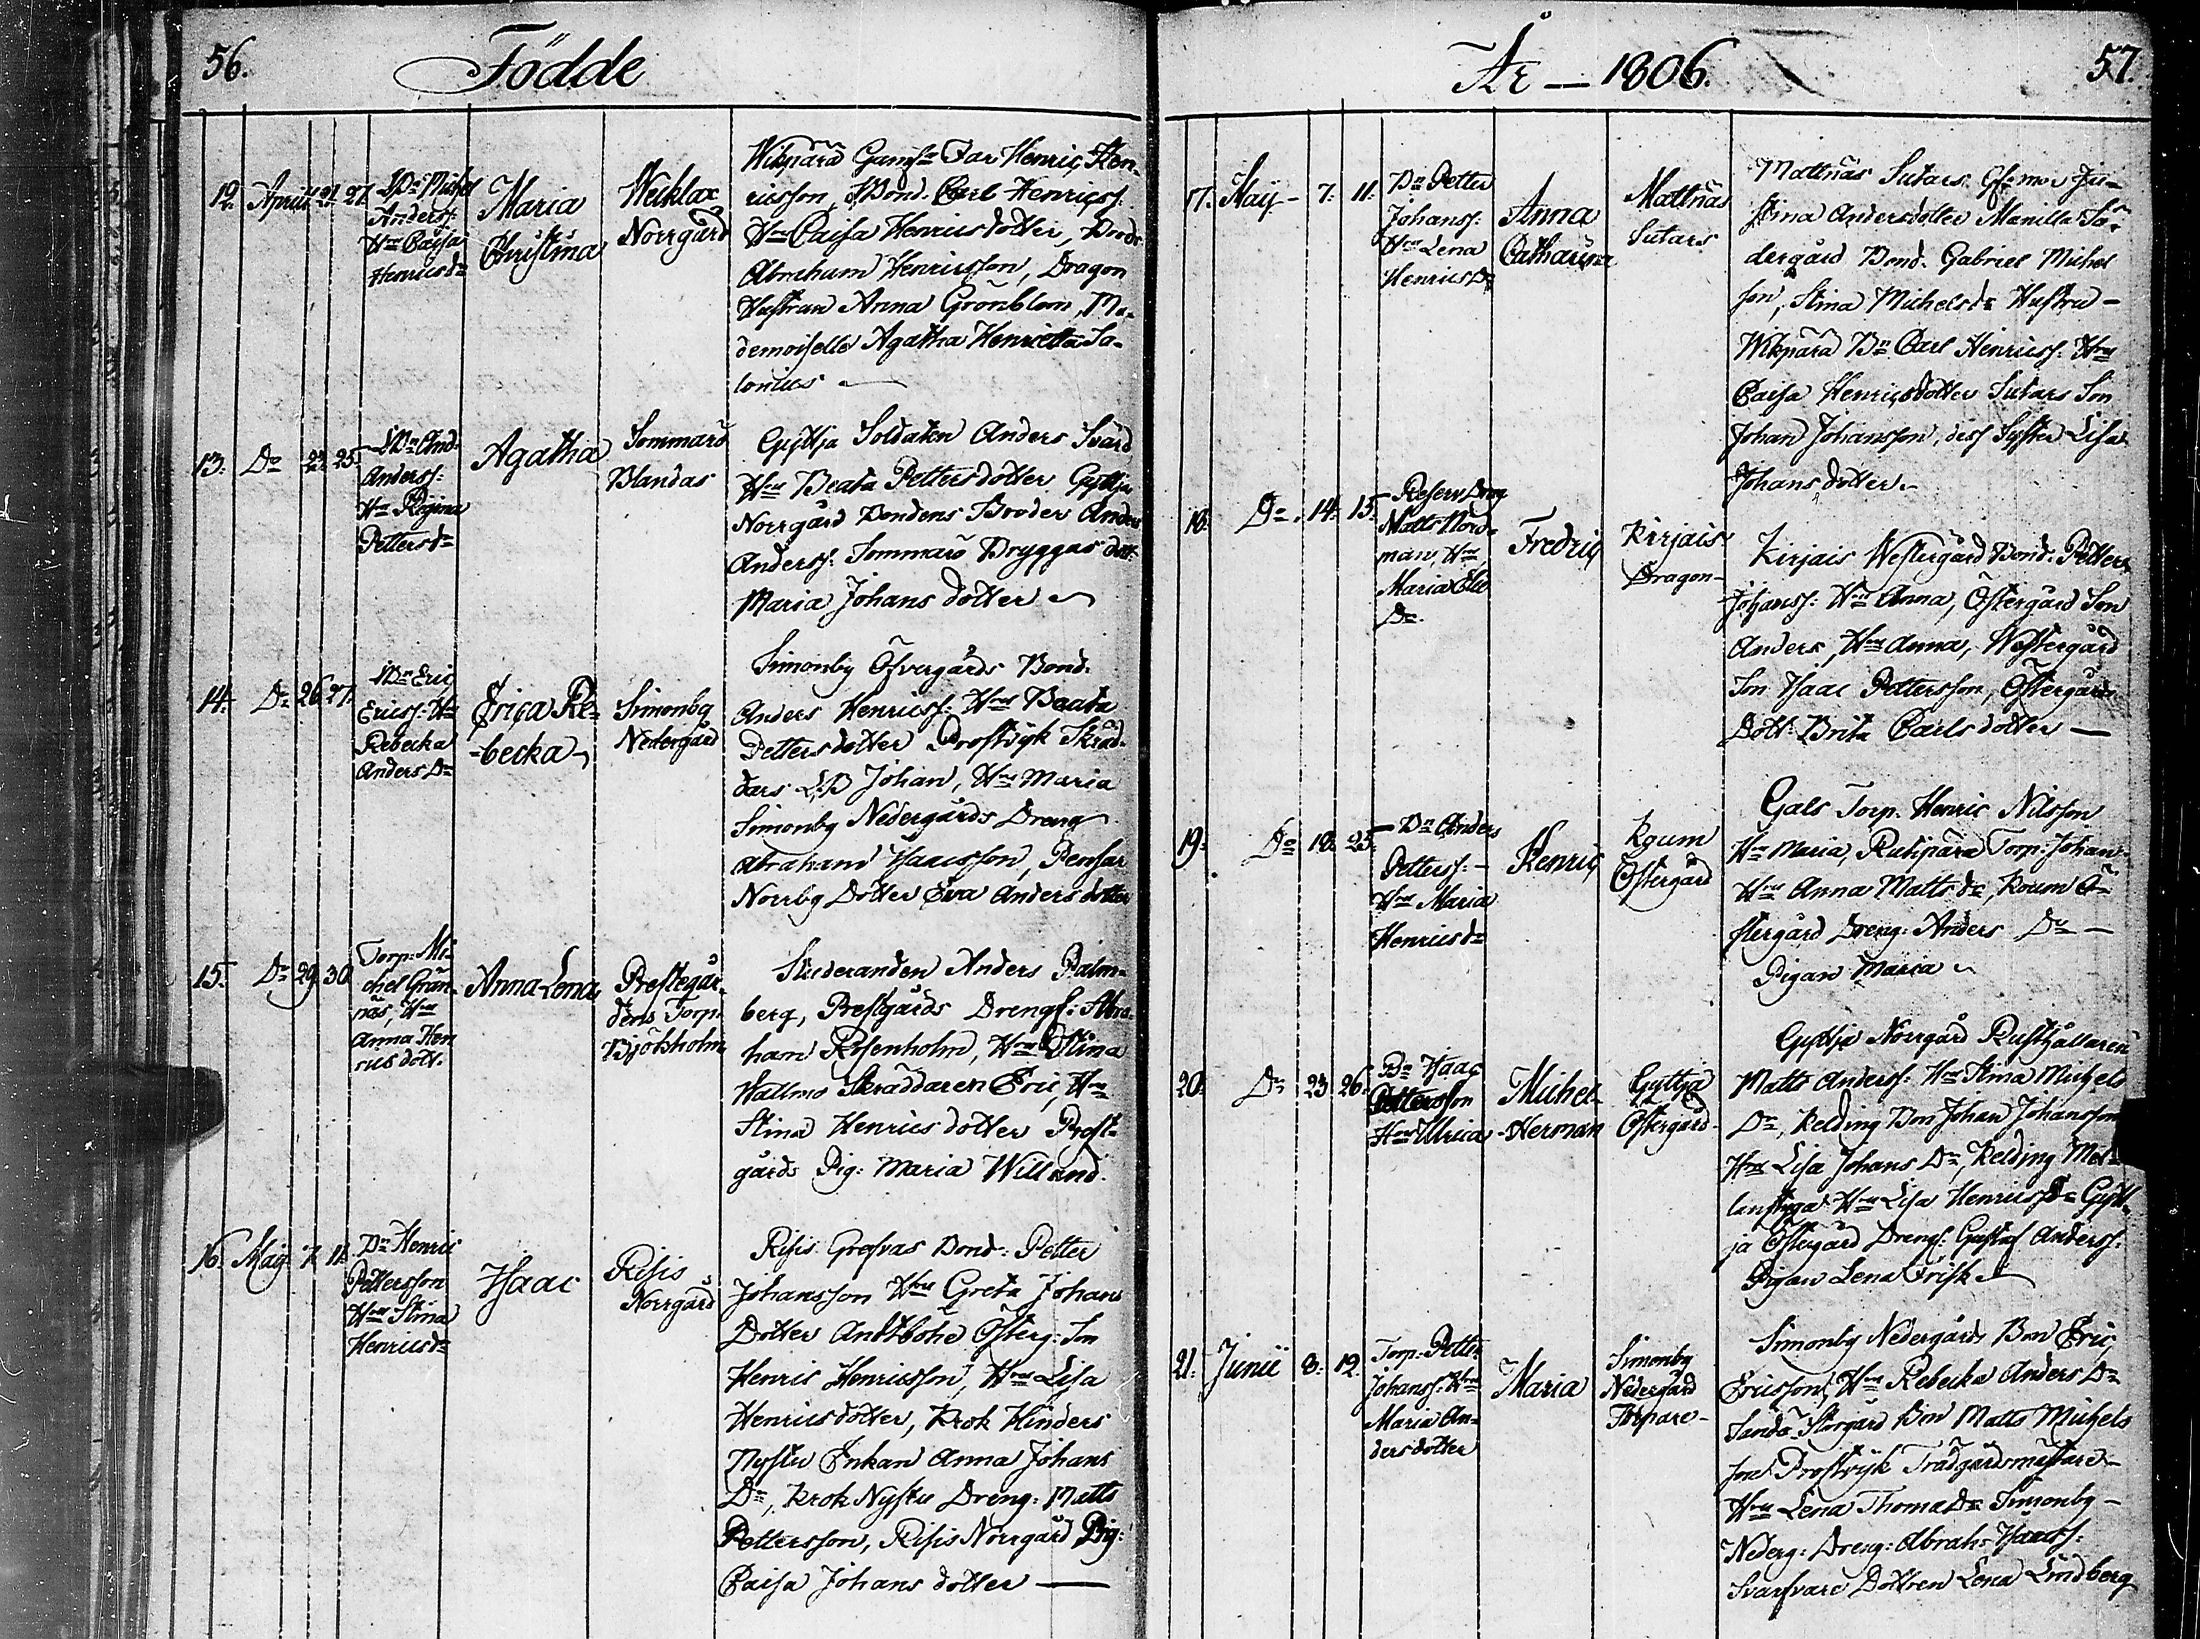 56.
Födde
12. April 21 27
Bn Michel
Anderss:
Hu Caisa
Henricsdr
Maria
Christina
Wecklax
Norrgård
Wiknärd Gam Far Henric Hen-
ricsson, Bond. Carl Henricss:
Hu Caisa Henricsdotter, Bonds
Abraham Henricsson, Dragon
Hustrun Anna Grönblom, Ma-
demoiselle Agatha Henrietta Sa-
lonius
13. Do 23 25
Bn And:
Anderss:
Hu Regina
Pettersdr
Agatha
Sommarö
Blandas
Gyttja Soldaten Anders Svärd
Hu Beata Pettersdotter Gyttja
Norrgård Bondens Broder Anders
Anderss: Sommarö Bryggas dott:
Maria Johans dotter
14. Do 26 27.
Bn Eric
Ericss: Hu
Rebecka
Anders Dr
Erica Re-
-becka
Simonby
Nedergård
Simonby Öfvergårds Bond.
Anders Henricss: Hu Beata
Pettersdotter Prostvjk Skräd-
dars Johan, Hu Maria
Simonby Nedergårds Dreng
Abraham Isaacsson, Pensar
Norrby Dotter Eva Andersdotter
15. Do 29 30
Torp: Mi-
chel Grän-
näs, Hu
Anna Hen
rics dott.
Anna Lena
Prestegår-
dens Torp
Björkholm
Studeranden Anders Palm-
berg, Prestgårds Drengs: Abra-
ham Rosenholm, Hu Stina
Wallmo Skräddaren Eric, Hu
Stina Henrics dotter Prest-
gårds Pig: Maria Willand.
16. Maij 7. 11.
Bn Henric
Pettersson
Hu Stina
Henricsdr
Isaac
Risis
Norrgård
Risis Grefvas Bond: Petter
Johansson Hu Greta Johans
Dotter Andtböhe Österg: Son
Henric Henricsson, Hu Lisa
Henricsdotter, Krok Hinders
Nystu Enkan Anna Johans
Dr, Krok Nystu Dreng: Matts
Pettersson, Risis Norrgård Pig:
Caisa Johans dotter
År — 1806.
57.
17. Maij - 7. 11.
Bn Petter
Johanss:
Hu Lena
Henrics Dr
Anna
Catharina
Mattnäs
Sutars
Mattnäs Sutars Gl: mor Ju-
stina Andersdotter Manilla Sö-
dergård Bond. Gabriel Michel
son, Stina Michelsdr Hustru -
Wiknärd Bn Carl Henricss: Hu
Caisa Henricsdotter Sutars Son
Johan Johansson, dess Syster Lisa
Johans dotter
18. Do. 14. 15.
Reserv Drag
Matts Nord-
man, Hu
Maria Eli
Dr.
Fredric
Kirjais
Dragon-
Kirjais Westergård Bond. Petter
Johanss: Hu Anna, Östergård Son
Anders, Hu Anna, Westergård
Son Isaac Pettersson, Östergårds
Dott: Brita Carls dotter
19. Do 18. 25.
Bn Anders
Petterss: -
Hu Maria
Henricsdr
Henric
Koum
Östergård
Gals Torp. Henric Nilsson
Hu Maria, Torp: Johan
Hu Anna Matts dr, Koum Ö-
stergård Dreng: Anders Dr -
Pigan Maria
20. Do 23 26.
Bn Isaac
Pettersson
Hu Ulrica
Michel
-Herman
Gyttja
Östergård
Gyttja Norrgård Rusthållaren
Matts Anderss: Hu Stina Michels
Dr, Kelding Bon Johan Johansson
Hu Lisa Johans Dr, Kelding Mel-
lanstuga Hu Lisa Henricss Dr Gytt-
ja Östergård Drengs: Gustaf Anderss:
Pigan Lena Frisk
21. Junii 8. 12.
Torp: Petter
Johanss: Hu
Maria An-
dersdotter
Maria
Simonby
Nedergård
Torpare-
Simonby Nedergårds Bon Eric
Ericsson, Hu Rebecka Anders Dr
Sandö Storgård Bon Matts Michels
son Prostvjk Trädgårdsmästare
Hu Lena Thoma Dr Simonby -
Nederg: Dreng: Abrah: Isaacss:
Svarfvare Dottren Lena Lindberg